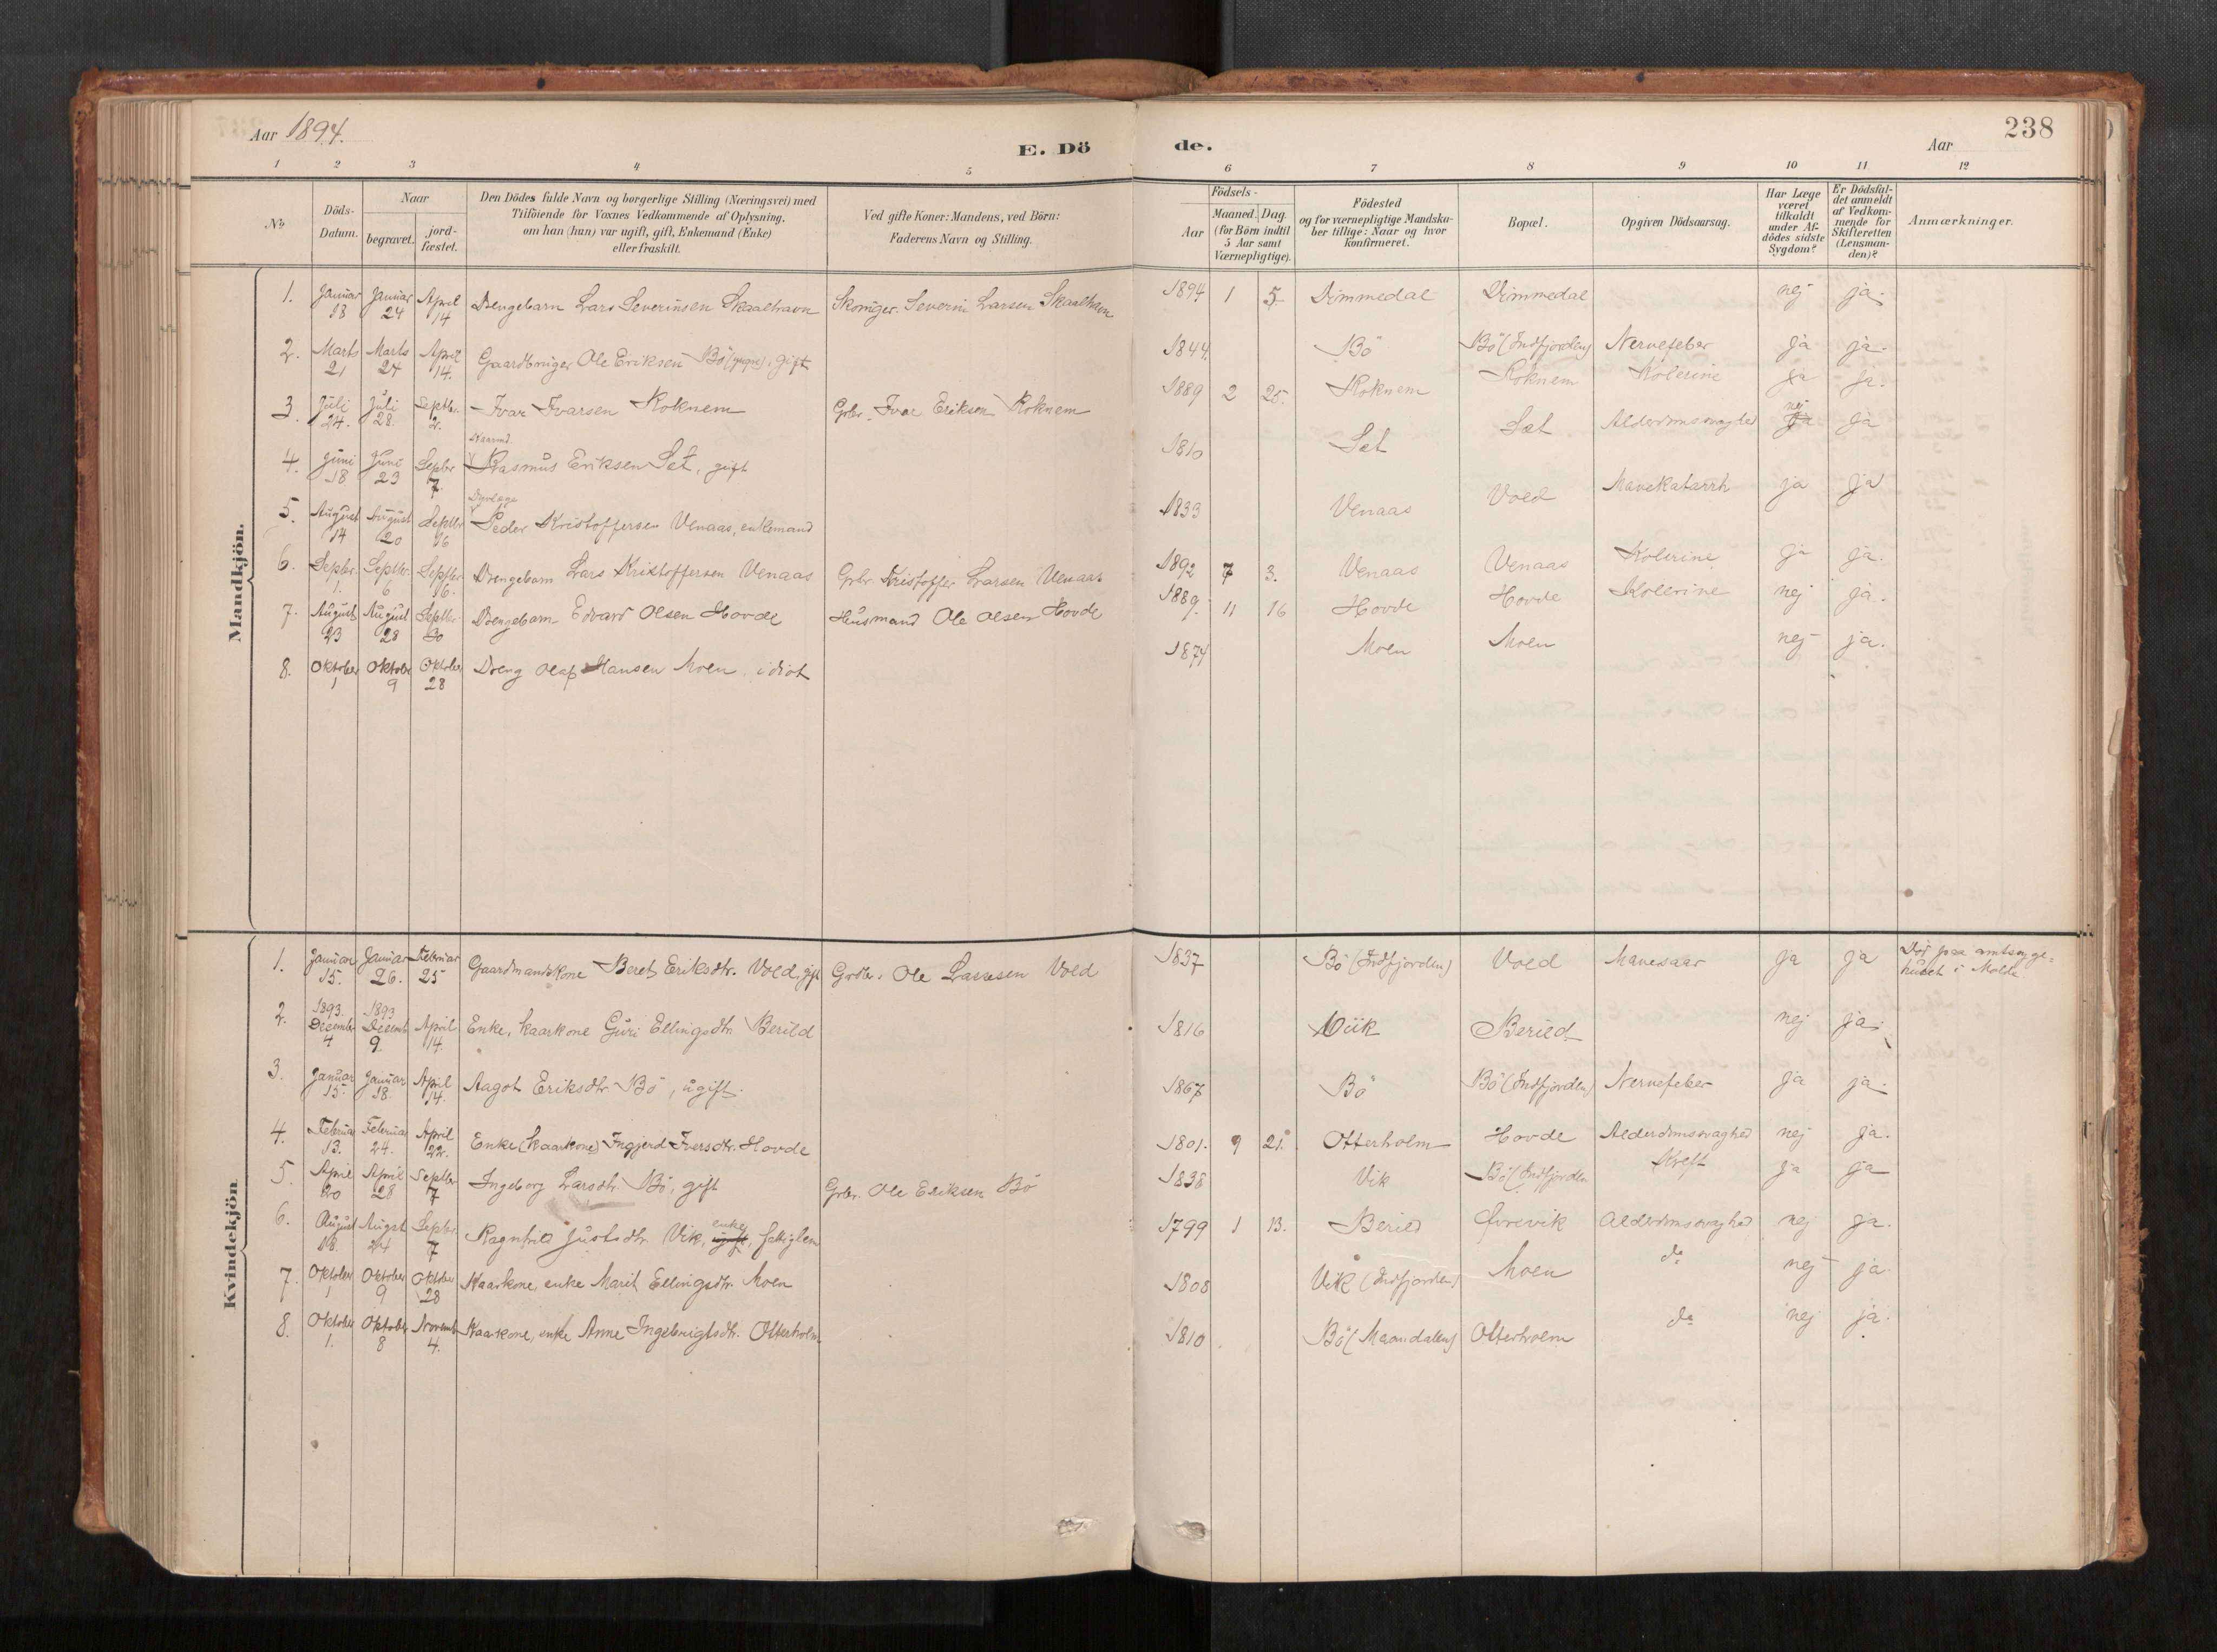 Aar 1894.
E. Dö
de.
Aar
238
1 2 3 4 5 6 7 8 9 10 11 12
No
Döds-Datum.
Naar
begravet.
jord-fæstet.
Den Dödes fulde Navn og borgerlige Stilling (Næringsvei) med
Tilföiende for Voxnes Vedkommende af Oplysning,
om han (hun) var ugift, gift, Enkemand (Enke)
eller fraskilt.
Ved gifte Koner: Mandens, ved Börn:
Faderens Navn og Stilling.
Födsels-
Aar
Maaned. Dag.
(for Börn indtil
5 Aar samt
Værnepligtige).
Födested
og for værnepligtige Mandska-
ber tillige: Naar og hvor
konfirmeret.
Bopæl.
Opgiven Dödsaarsag.
Har Læge
været
tilkaldt
under Af-
dödes sidste
Sygdom?
Er Dödsfal-
det anmeldt
af Vedkom-
mende for
Skifteretten
(Lensman-
den)?
Anmærkninger.
Mandkjön.
1. Januar 18 Januar 24 April 14 Drengebarn Lars Severinsen Skaalhavn Skomager Severin Larsen Skaalhavn 1894 1 5. Dimmedal Dimmedal nej ja.
2. Marts 21 Marts 27 April 14. Gaardbruger Ole Eriksen Bö, gift 1844. Bö Bö (Indfjorden) Nervefeber ja ja.
3. Juli 24. Juli 28. Septbr. 2. Ivar Ivarsen Roknem Grbr. Ivar Eriksen Roknem 1889 2 25. Roknem Roknem Kolerine ja ja.
Kaarmd.
4. Juni 18 Juni 23 Septbr 7. Rasmus Eriksen Set, gift 1810 Set Sæt Alderdomssvaghed nej ja ja
Dyrlæge
5. August 14 August 20 Septbr 16 Peder Kristoffersen Venaas, enkemand 1833 Venaas Vold Mavekatarrh ja ja
6. Septbr. 1. Septbr. 6 Septbr. 16. Drengebarn Lars Kristoffersen Venaas Grbr. Kristoffer Larsen Venaas 1892 7 3. Venaas Venaas Kolerine ja ja.
7. August 23 August 28 Septbr. 30 Drengebarn Edvard Olsen Hovde Husmand Ole Olsen Hovde 1889. 11 16 Hovde Hovde Kolerine nej ja.
8. Oktober 1 Oktober 9 Oktober 28 Dreng Olaf Hansen Moen, idiot 1874 Moen Moen nej ja.
Kvindekjön
1. Januar 15. Januar 26. Februar 25 Gaardmandskone Beret Eriksdtr. Vold, gift Grdbr. Ole Larssen Vold 1837 Bö (Indfjorden) Vold Mavesaar ja ja Död paa amtssyge-
huset i Molde
2. 1893 December 4 1893 Decemb 9. April 14. Enke, kaarkone Guri Ellingsdtr. Berild 1816 Viik Berild nej ja.
3. Januar 15. Januar 18. April 14. Aagot Eriksdtr. Bö, ugift. 1867 Bö Bö (Indfjorden) Nervefeber ja ja.
4. Februar 13. Februar 24. April 22. Enke (kaarkone) Ingjerd Iversdtr. Hovde 1801. 9 21. Otterholm Hovde Alderdomssvaghed nej ja.
5. April 20 April 28 Septbr 7 Ingeborg Larsdtr. Bö, gift Grbr. Ole Eriksen Bö 1838 Vik Bö (Indfjorden Kreft ja ja
6. August 18. Augst 24 Septbr. 7 Ragnhild Justsdtr. Vik, ugift enke, fattiglem 1799 1 13. Berild Övrevik Alderdomssvaghed nej ja.
7. Oktober 1 Oktober 9 Oktober 28 Kaarkone, enke Marit Ellingsdtr. Moen 1808 Vik (Indfjorden) Moen do nej ja
8. Oktober 1. Oktober 8 Novemb 4. Kaarkone, enke Anne Ingebrigtsdtr. Otterholm 1810 Bö (Maandalen) Otterholm do nej ja.